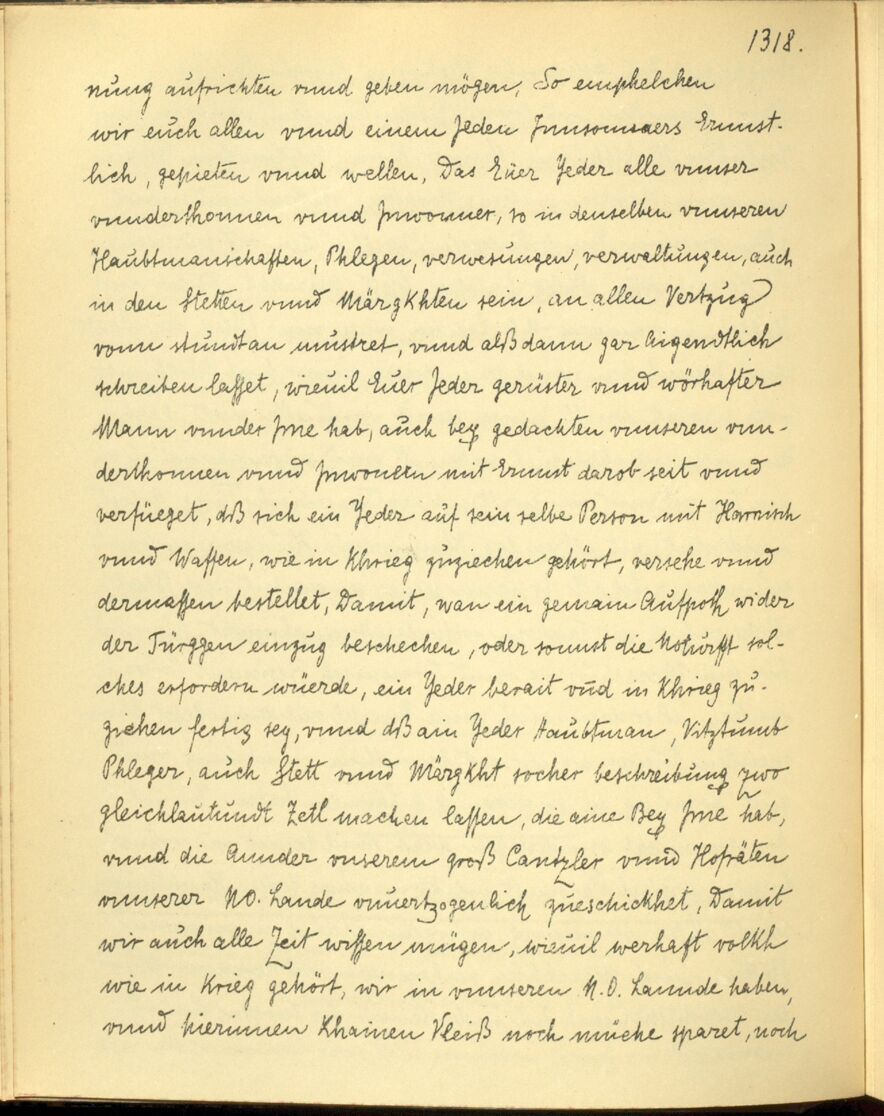 1318.
nung aufrichten vnnd geben mögen, So emphelchen
wir euch allen vnnd einem Jeden Innsonnders Ernnst-
lich, gepieten vnnd wellen, Das Euer Yeder alle vnnser
vnnderthonnen vnnd Jnwonner, so in denselben vnnseren
Haubtmanschafften, Phlegen, verwesungen, verwaltungen, auch
in den Stetten vnnd Märgkhten sein, an allen Vertzug
vonn stundt an mustret, vnnd alßdann gar Aigendtlich
schreiben lasset, wieuil Euer Jeder gerüster vnnd wörhafter
Mann vnnder Jme hab, auch bey gedachten vnnseren vnn-
derthonnen vnnd Jnwonern mit Ernnst darob seit vnnd
verfüeget, dß sich ein Yeder auf sein selbs Person mit Harnisch
vnnd Waffen, wie in Khrieg zuziechen gehört, versehe vnnd
dermassen bestellet, Damit, wan ein gemain Aufpoth wider
der Türggen einzug beschechen, oder sonnst die Noturfft sol-
ches erfordern wüerde, ein Yeder berait vnd in Khrieg zu-
ziehen fertig sey, vnnd dß ain Yeder Haubtman, Vitztumb
Phleger, auch Stett vnnd Märgkht socher beschreibung zwo
gleichlautundt Zetl machen lassen, die aine Bey Jme hab,
vnnd die Annder vnserem groß Cantzler vnnd Hofräten
vnnserer N.O. Lande vnuertzogenlich zueschickhet, Damit
wir auch alle Zeit wissen mügen, wieuil werhaft volkh
wie in Krieg gehört, wir in vnnseren N.O. Lannde haben,
vnnd hierinnen Khainen Vleiß noch müehe sparet, noch